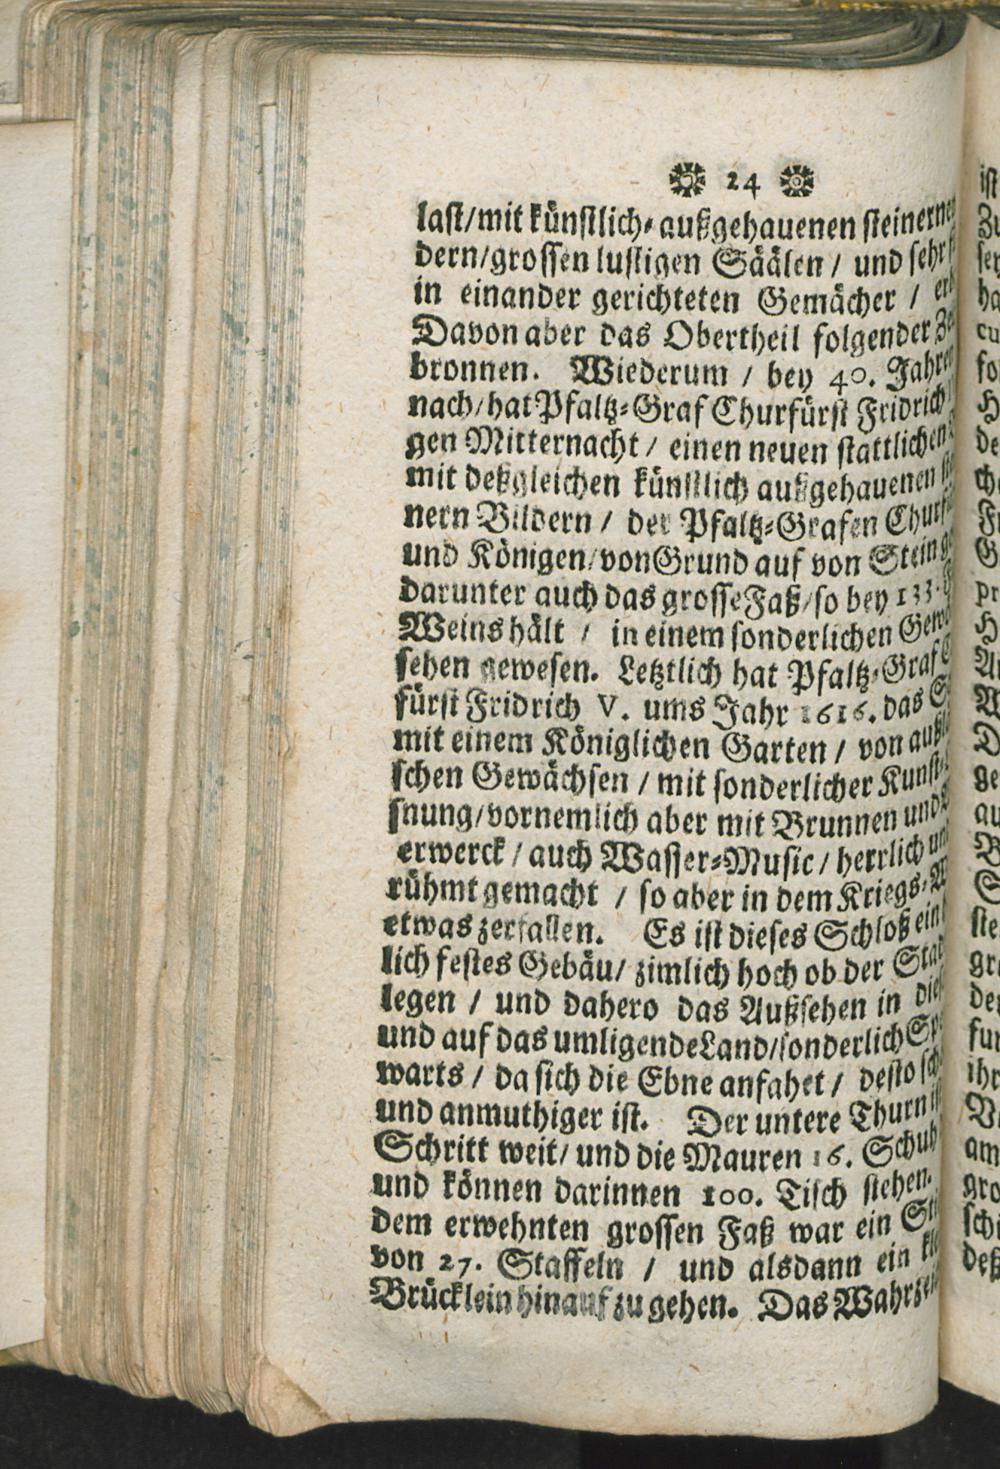 24
last/mit künstlich-außgehauenen steinernen
dern/grossen lustigen Säälen / und sehr
in einander gerichteten Gemächer /
Davon aber das Obertheil folgender
bronnen. Wiederum / bey 40. Jahren
nach/hat Pfaltz-Graf Churfürst Fridrich
gen Mitternacht / einen neuen stattlichen
mit deßgleichen künstlich außgehauenen
nern Bildern / der Pfaltz-Grafen
und Königen/von Grund auf von Stein
darunter auch das grosse Faß/so bey 133.
Weins hält / in einem sonderlichen
sehen gewesen. Letztlich hat Pfaltz-Graf
fürst Fridrich V. ums Jahr 1616. das
mit einem Königlichen Garten / von
schen Gewächsen / mit sonderlicher
snung/vornemlich aber mit Brunnen und
erwerck / auch Wasser-Music / herrlich
rühmt gemacht / so aber in dem Kriegs-
etwas zerfallen. Es ist dieses Schloß ein
lich festes Gebäu/ zimlich hoch ob der
legen / und dahero das Außsehen in
und auf das umligende Land/sonderlich
warts / da sich die Ebne anfahet / desto
und anmuthiger ist. Der untere Thurn
Schritt weit/ und die Mauren 16. Schuh
und können darinnen 100. Tisch stehen.
dem erwehnten grossen Faß war ein
von 27. Staffeln / und alsdann ein
Brücklein hinauf zu gehen. Das
ist